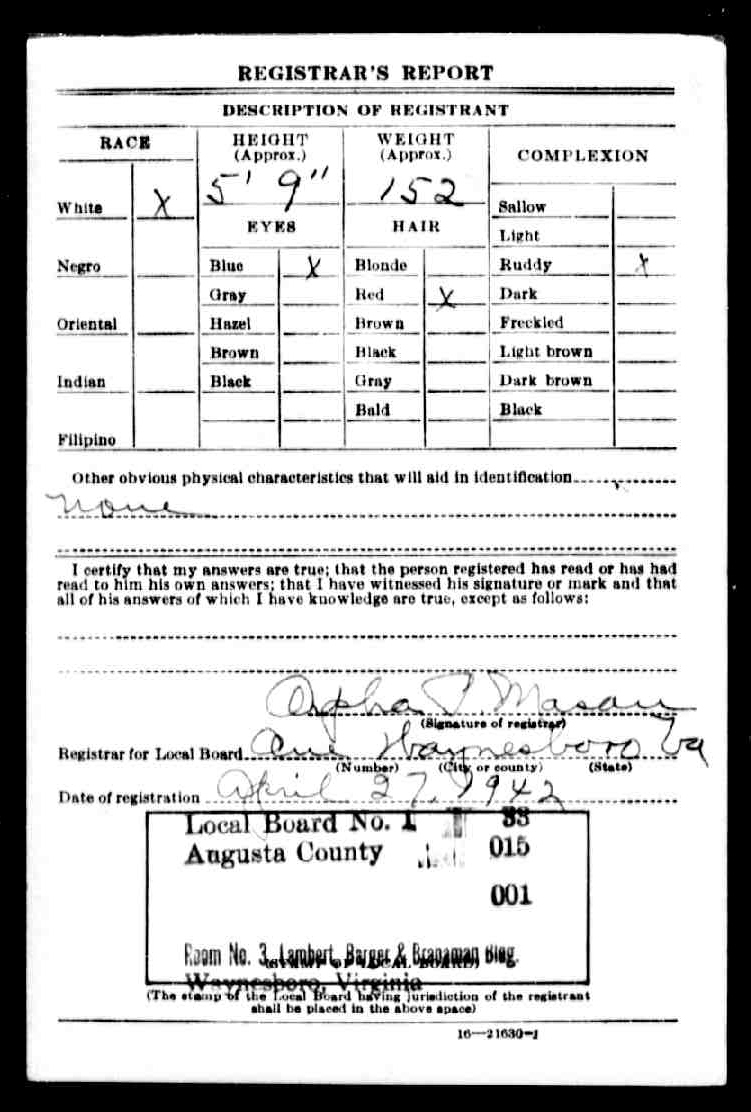 REGISTRAR'S REPORT
DESCRIPTION OF REGISTRANT
RACE
HEIGHT
(Approx.)
WEIGHT
(Approx.)
COMPLEXION
5' 9"
152
White X
Sallow
EYES
HAIR
Light
Negro
Blue X
Blonde
Ruddy X
Gray
Red X
Dark
Oriental
Hazel
Brown
Freckled
Brown
Black
Light brown
Indian
Black
Gray
Dark brown
Bald
Black
Filipino
Other obvious physical characteristics that will aid in identification
None
I certify that my answers are true; that the person registered has read or has had
read to him his own answers; that I have witnessed his signature or mark and that
all of his answers of which I have knowledge are true, except as follows:
Orpha P. Mason
(Signature of registrar)
Registrar for Local Board One Waynesboro Va
(Number) (City or county) (State)
Date of registration April 27, 1942
Local Board No. 1 33
Augusta County 015
001
Room No. 3, Lambert, Barger & Branaman Bldg.
(STAMP OF LOCAL BOARD)
Waynesboro, Virginia
(The stamp of the Local Board having jurisdiction of the registrant
shall be placed in the above space)
16—21630-1